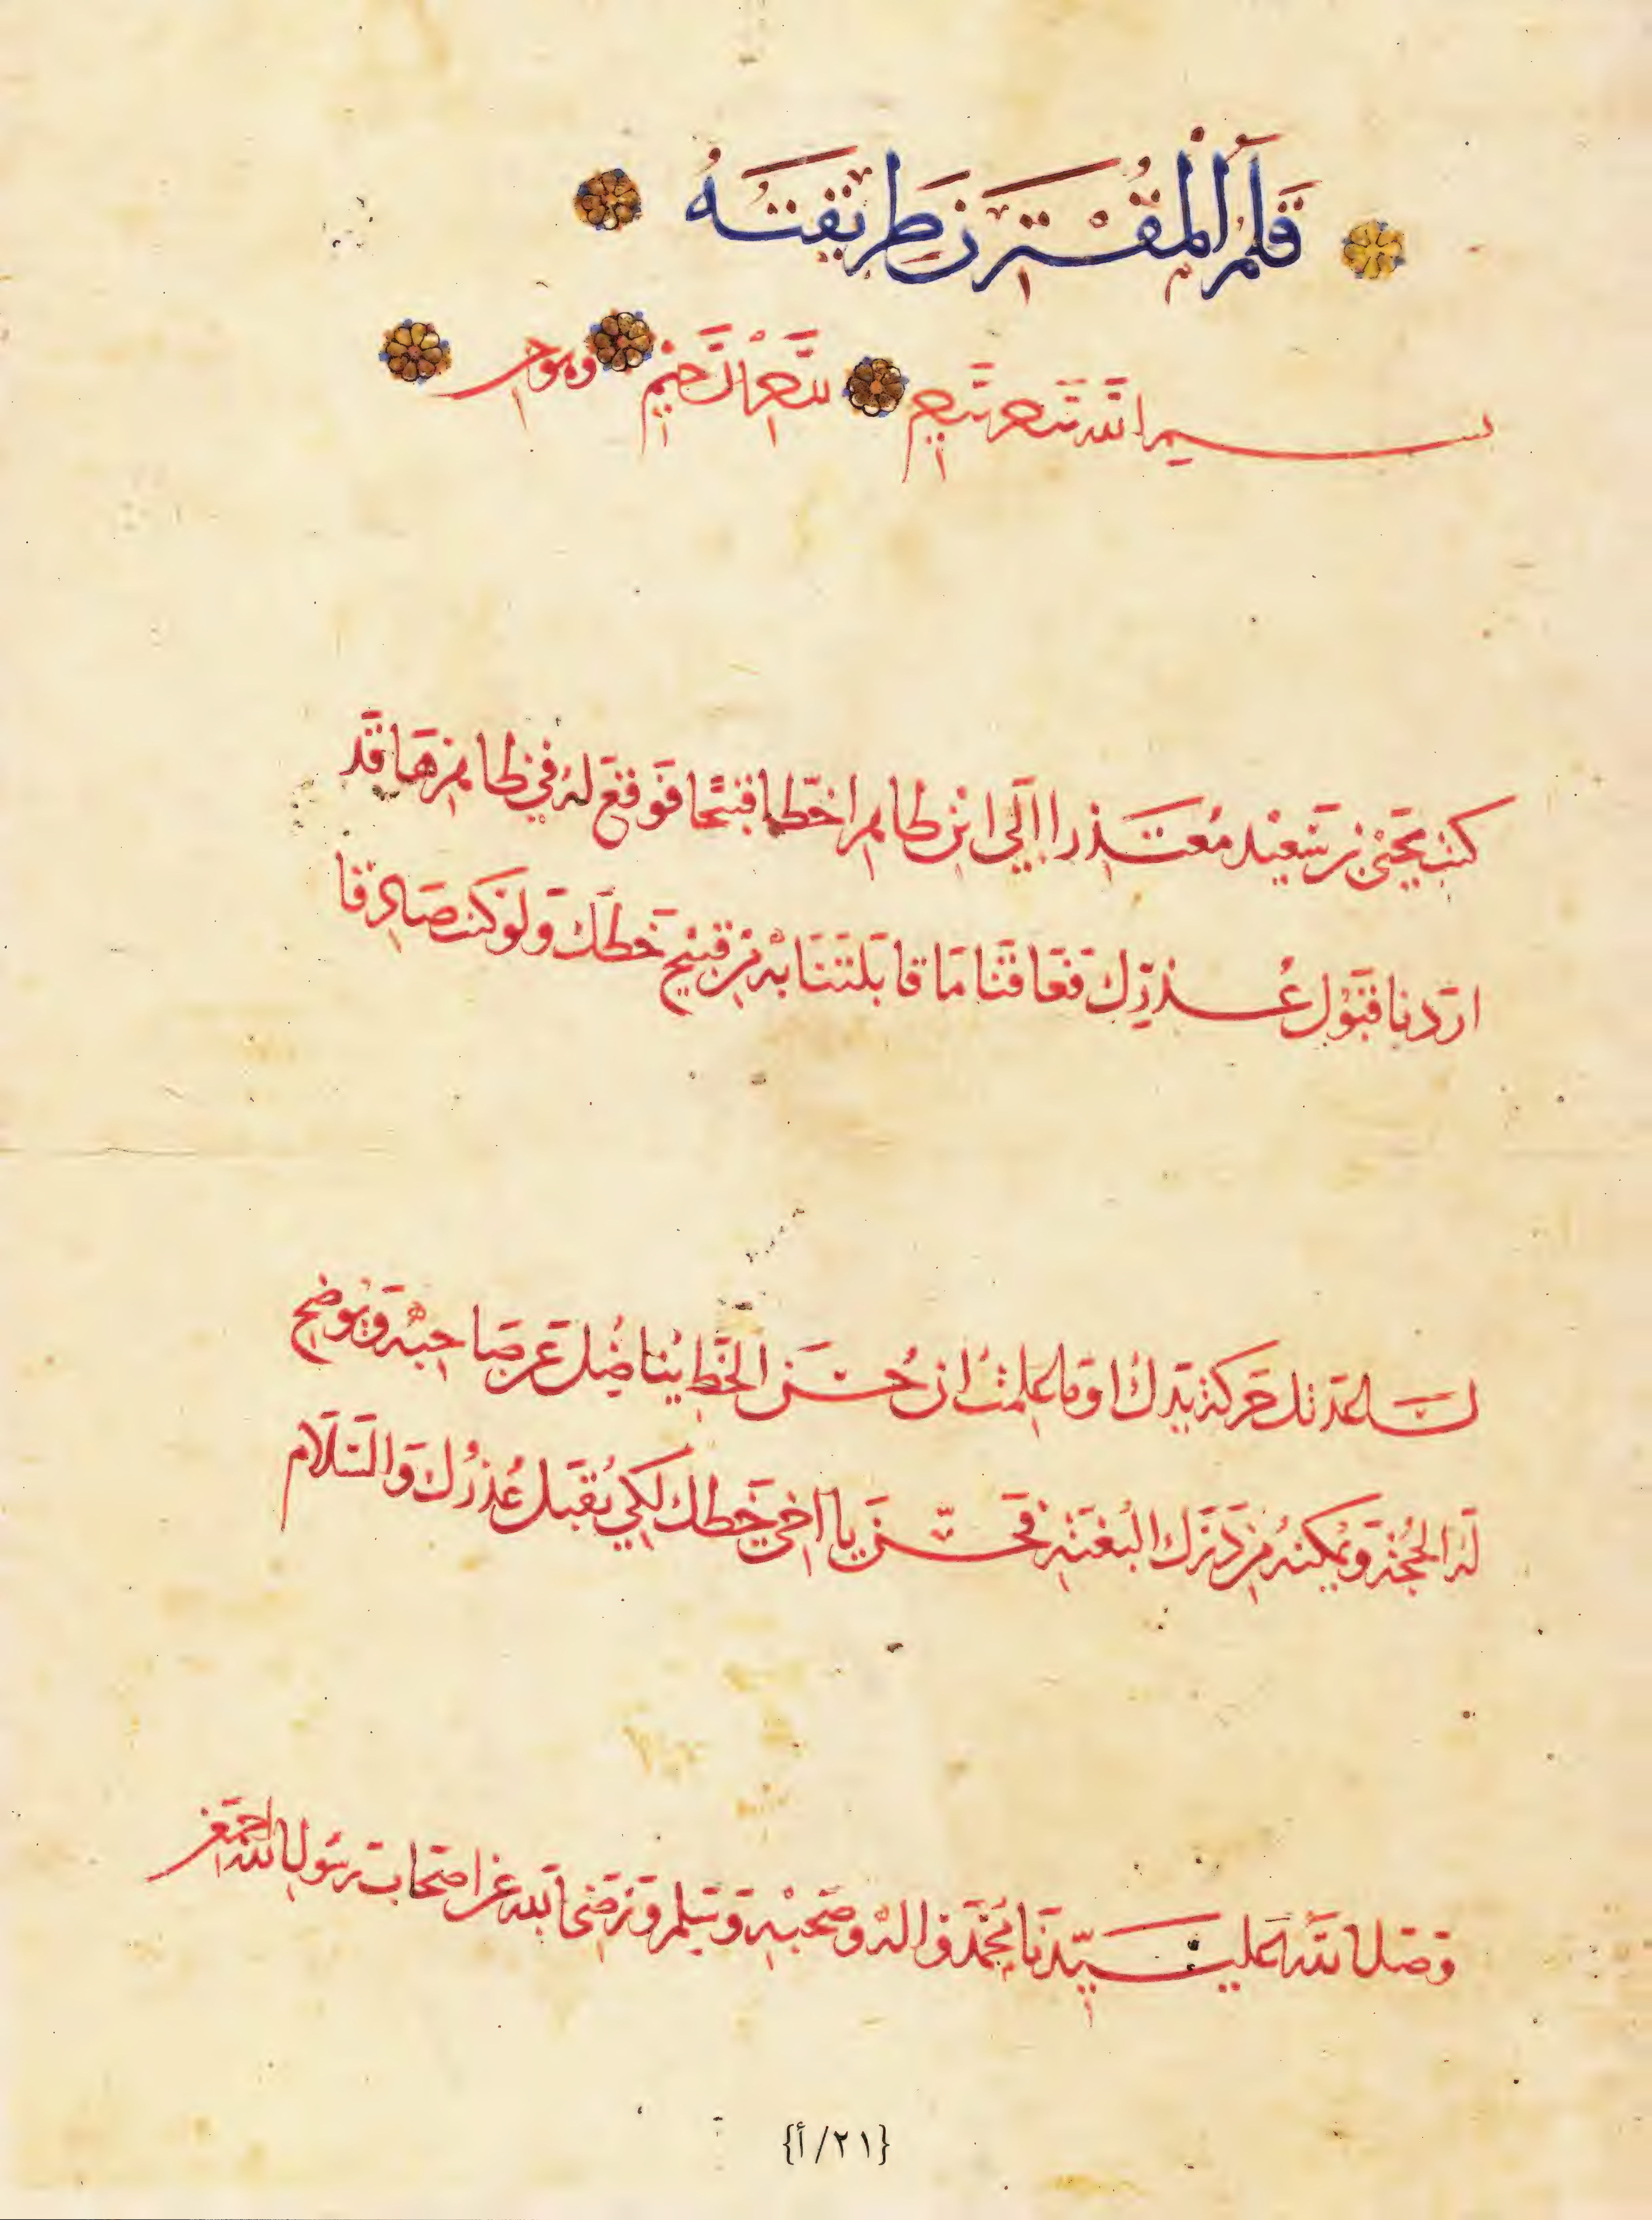 قلم المقترن طريقته
بسم الله
كتب يحيى بن سعيد معتذرا الى ابن طاهر اخطا قبيحا فوقع له في ظاهرها قد
اردنا قبول عذرك فعاقنا ما قابلتنا به من قبيح خطك ولو كنت صادقا
لساعدتك حركة يدك او ما علمت ان حسن الخط يناضل عن صاحبه ويوضح
له الحجة ويمكنه من درك البغية فحسن يا اخي خطك لكي يقبل عذرك والسلام
وصلى الله على سيدنا محمد واله وصحبه وسلم ورضي الله عن اصحاب رسول الله اجمعين
{٢١/أ}